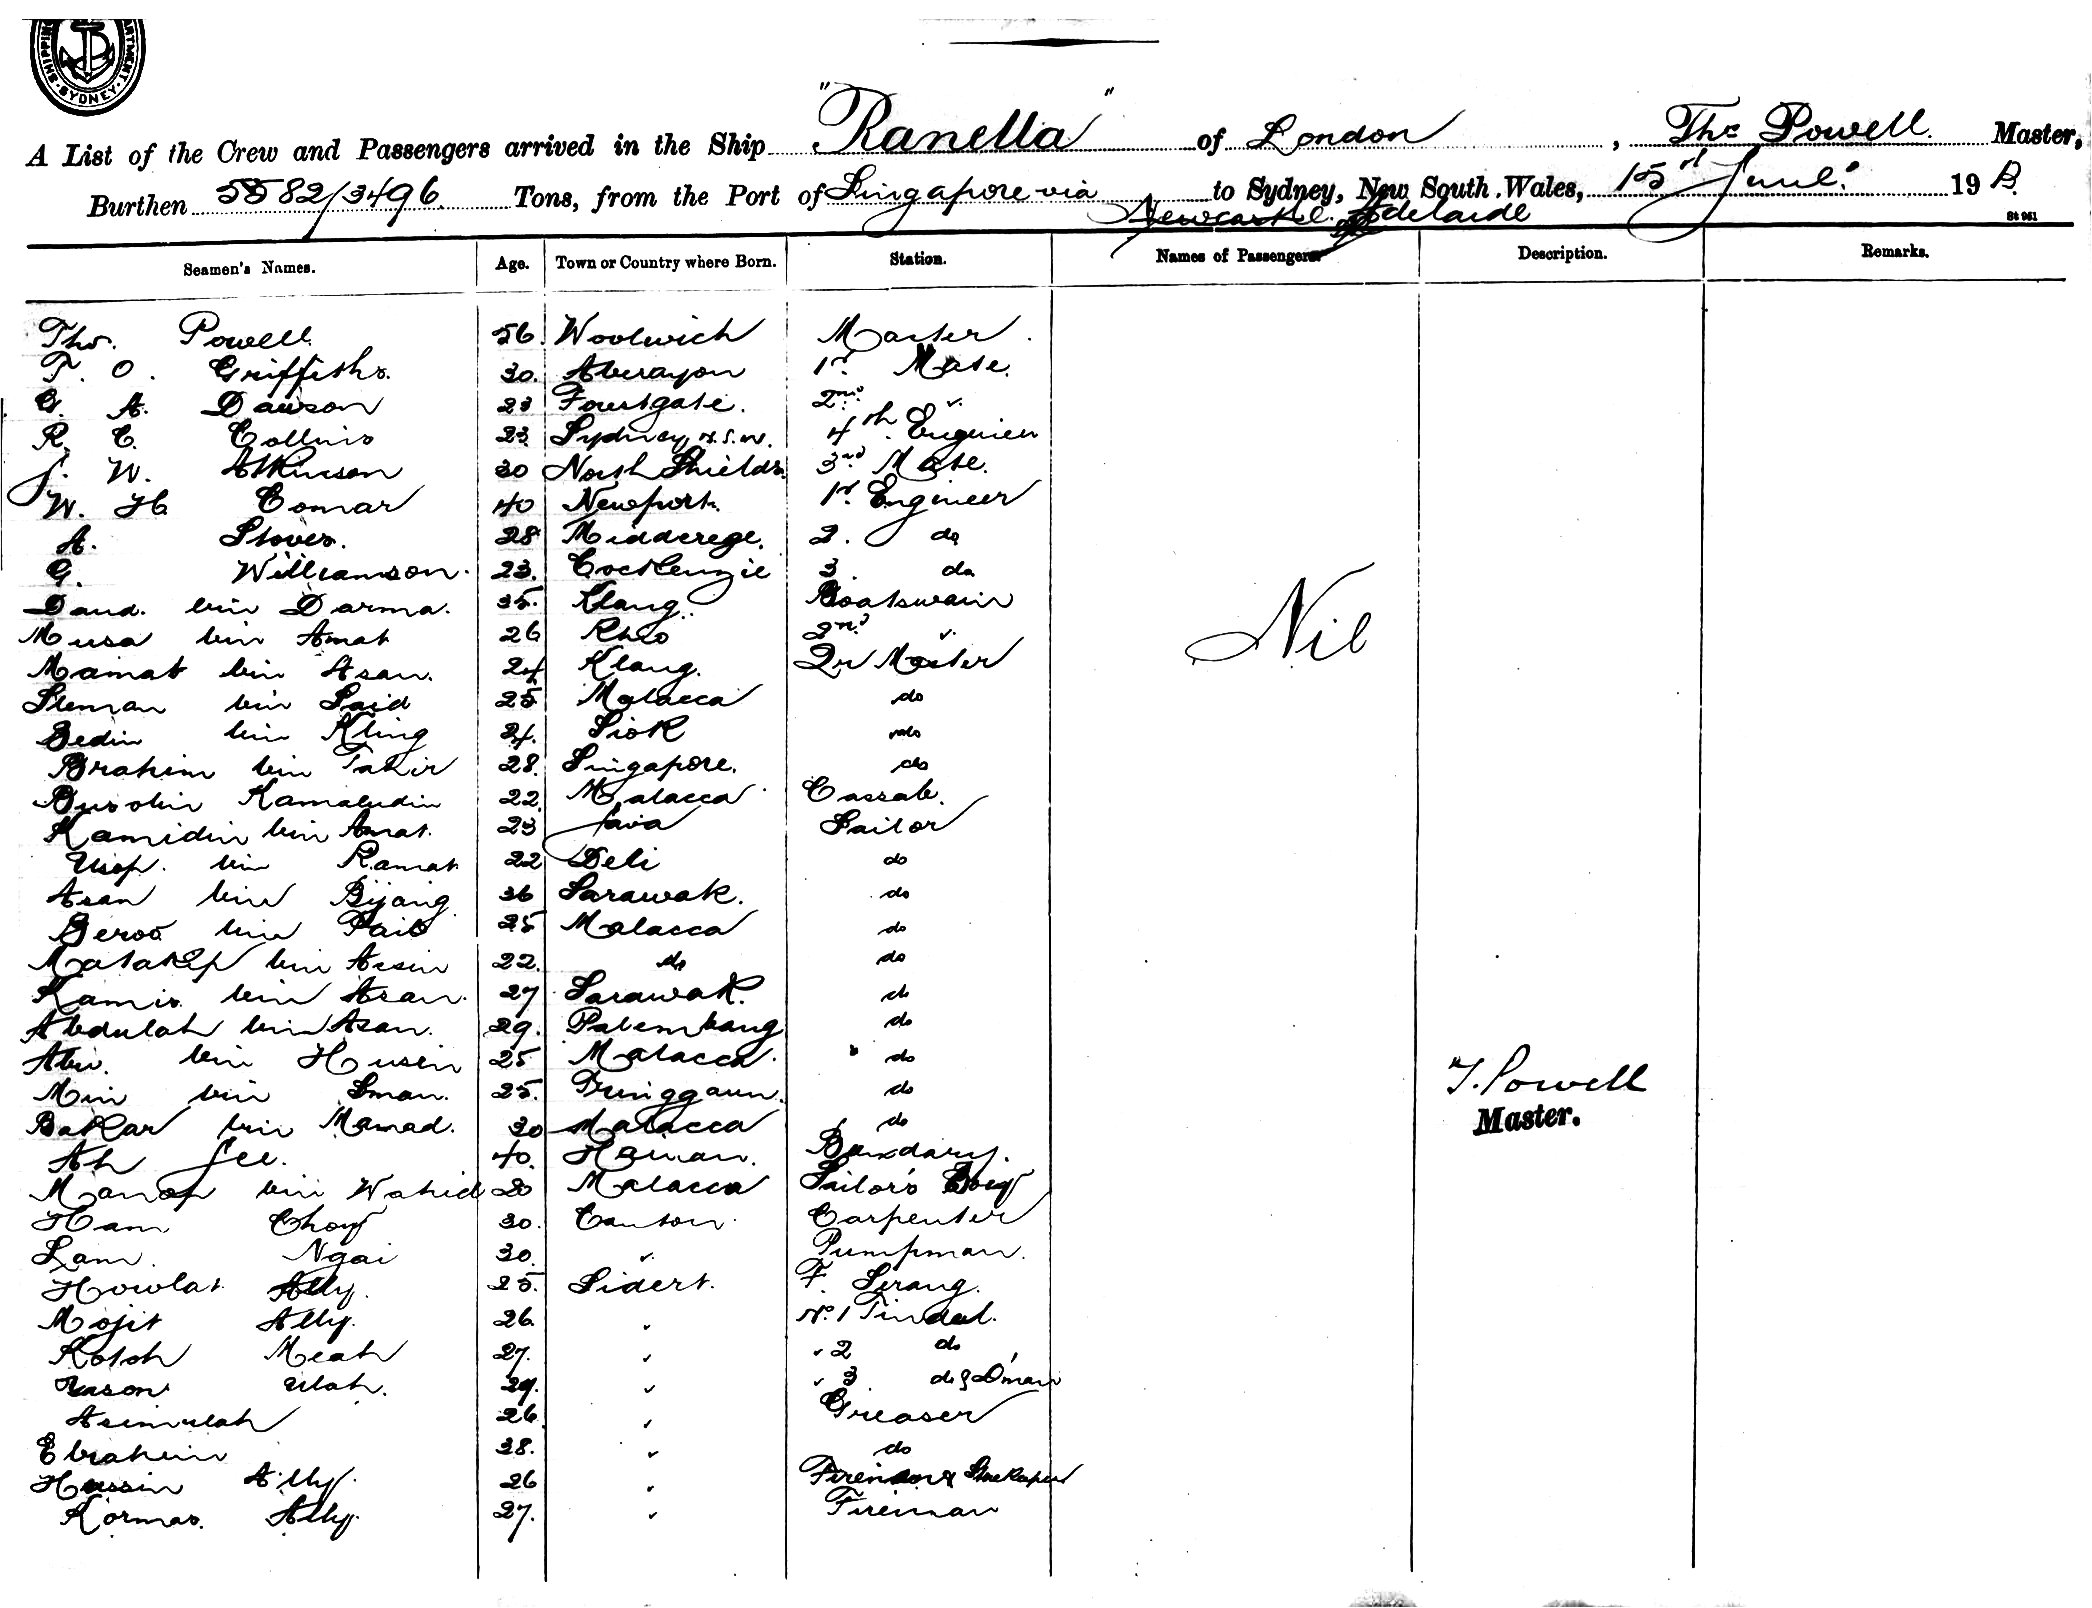 SHIPPING DEPARTMENT SYDNEY
A List of the Crew and Passengers arrived in the Ship "Ranella" of London, Thos Powell Master,
Burthen 5582/3496 Tons, from the Port of Singapore via Newcastle Adelaide to Sydney, New South Wales, 15th June 19
St 961
Seamen's Names. Age. Town or Country where Born. Station. Names of Passengers Description. Remarks.
Thos. Powell 56 Woolwich Master
T. O. Griffiths 30. Aberayon 1st Mate.
G. A. Dawson 23 2nd "
R. C. Collins 23 Sydney N.S.W. 4th Engineer
J. W. Atkinson 30 North Shields 3rd Mate.
W. H. Comar 40 Newport. 1st Engineer
A. 28 2. do
G. Williamson. 23. Cockenzie 3. do
Daud. bin Darma. 35. Klang. Boatswain
Musa bin Amat 26 Rhio 2nd "
Mamat bin Asan. 24 Klang. Qr Master
Sleman bin Said 25 Malacca do
Bedin bin Kling 24. Siok do
Brahim bin Tahir 28. Singapore. do
Kamaludin 22 Malacca Cassab.
Kamidin bin Amat. 23 Java Sailor
Usop. bin Ramat 22 Deli do
Asan bin Bijang 36 Sarawak. do
Beroo bin 25 Malacca do
bin Assin 22. do do
Kamis bin Asan. 27 Sarawak. do
Abdulah bin Asan. 29. Palembang do
Abu. bin Husin 25 Malacca do
Min bin Sman. 25. Tringgaun. do
Bakar bin Mamad. 30 Malacca do
Ah Jee. 40. Hainan. Bandary.
bin Wahid 20 Malacca Sailor's Boy
Ham Choy 30. Canton. Carpenter
Lam. Ngai 30. " Pumpman.
Howlat Ally. 25. Sidert. F. Serang.
Mojit Ally. 26. " No. 1 Tindal.
Kotoh Meah 27. " " 2 do
Ulah. 29. " " 3 do & D'man
Asimulah 26 " Greaser
Ebrahim 38. " do
Hassin Ally. 26 " Fireman & Storekeeper
Kormas. Ally. 27. " Fireman
Nil
T. Powell
Master.